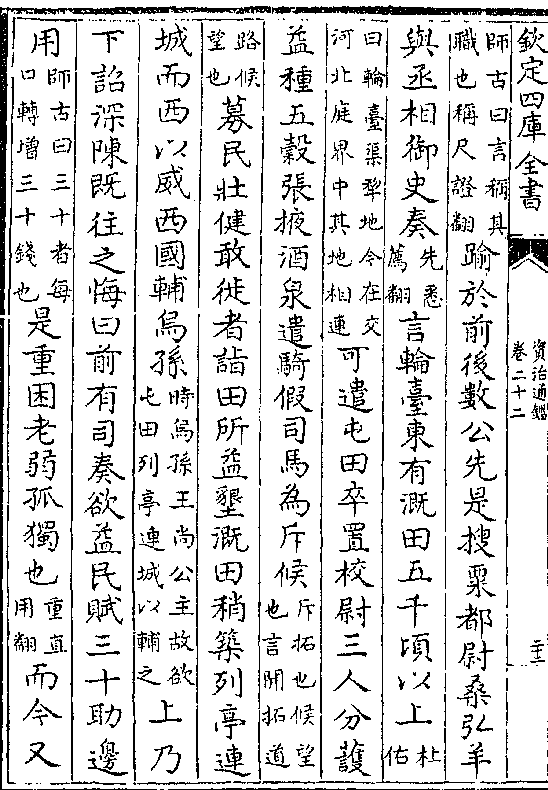 欽定四庫全書
資治通鑑
卷二十二
二十二
師古曰言稱其
職也稱尺證翻
踰於前後數公先是搜粟都尉桑弘羊
與丞相御史奏
先悉
薦翻
言輪臺東有溉田五千頃以上
杜
佑
曰輪臺渠犂地今在交
河北庭界中其地相連
可遣屯田卒置校尉三人分護
益種五穀張掖酒泉遣騎假司馬為斥候
斥拓也候望
也言開拓道
路候
望也
募民壯健敢徙者詣田所益墾溉田稍築列亭連
城而西以威西國輔烏孫
時烏孫王尚公主故欲
屯田列亭連城以輔之
上乃
下詔深陳既往之悔曰前有司奏欲益民賦三十助邊
用
師古曰三十者每
口轉增三十錢也
是重困老弱孤獨也
重直
用翻
而今又